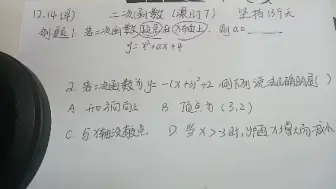 12.14(详) 二次函数(课时7) 坚持139天
例题1. 若二次函数顶点在x轴上,则a=____
y=x²+ax+4
2. 若二次函数为y=-(x+3)²+2,则下列说法正确的是( )
A 开口方向向上 B 顶点为(3,2)
C. 与x轴没有交点 D 当x>-3时,y随x增大而减小